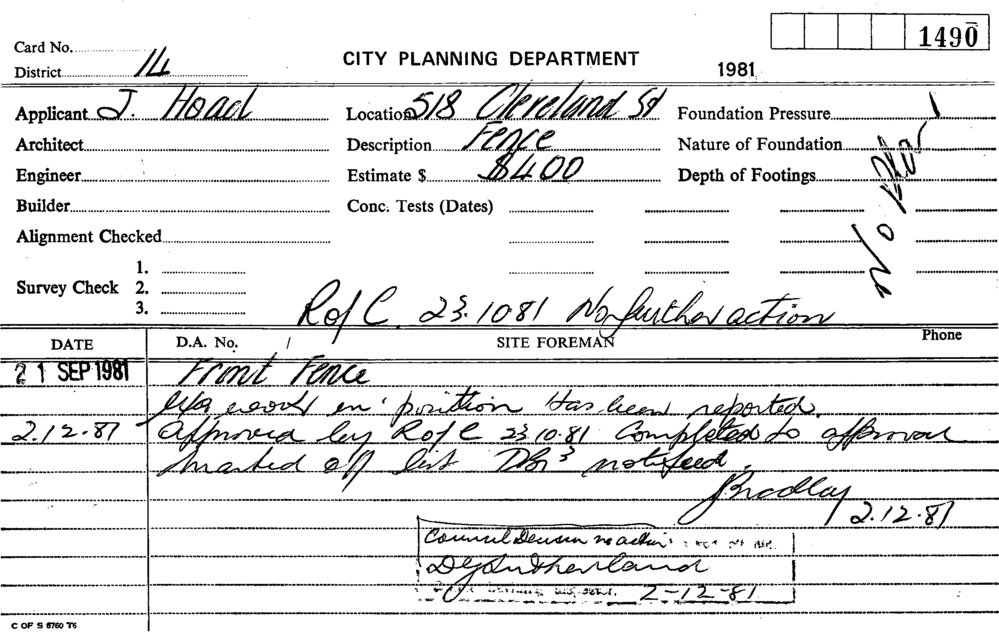 1490
Card No.
District 14
CITY PLANNING DEPARTMENT
1981
Applicant J. Hoad
Location 518 Cleveland St
Foundation Pressure
Architect
Description Fence
Nature of Foundation
Engineer
Estimate $ $400
Depth of Footings
Builder
Conc. Tests (Dates)
No
Alignment Checked
Survey Check
1.
2.
3.
R of C. 23.10.81 No further action
DATE
D.A. No.
SITE FOREMAN
Phone
21 SEP 1981
Front Fence
in position Has been reported.
2.12.81 approved by R of C 23.10.81 Completed to approval
marked off list notifeed.
Bradley
2.12.81
Council no action
Sutherland
2-12-81
C OF S 6760 T6